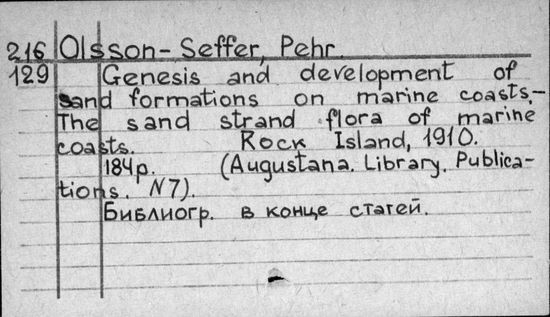 216 Olsson-Seffer, Pehr.
129 Genesis and development of
sand formations on marine coasts.-
The sand strand flora of marine
coasts. Rock Island, 1910.
184p. (Augustana. Library. Publica-
tions. N7).
Библиогр. в конце статей.